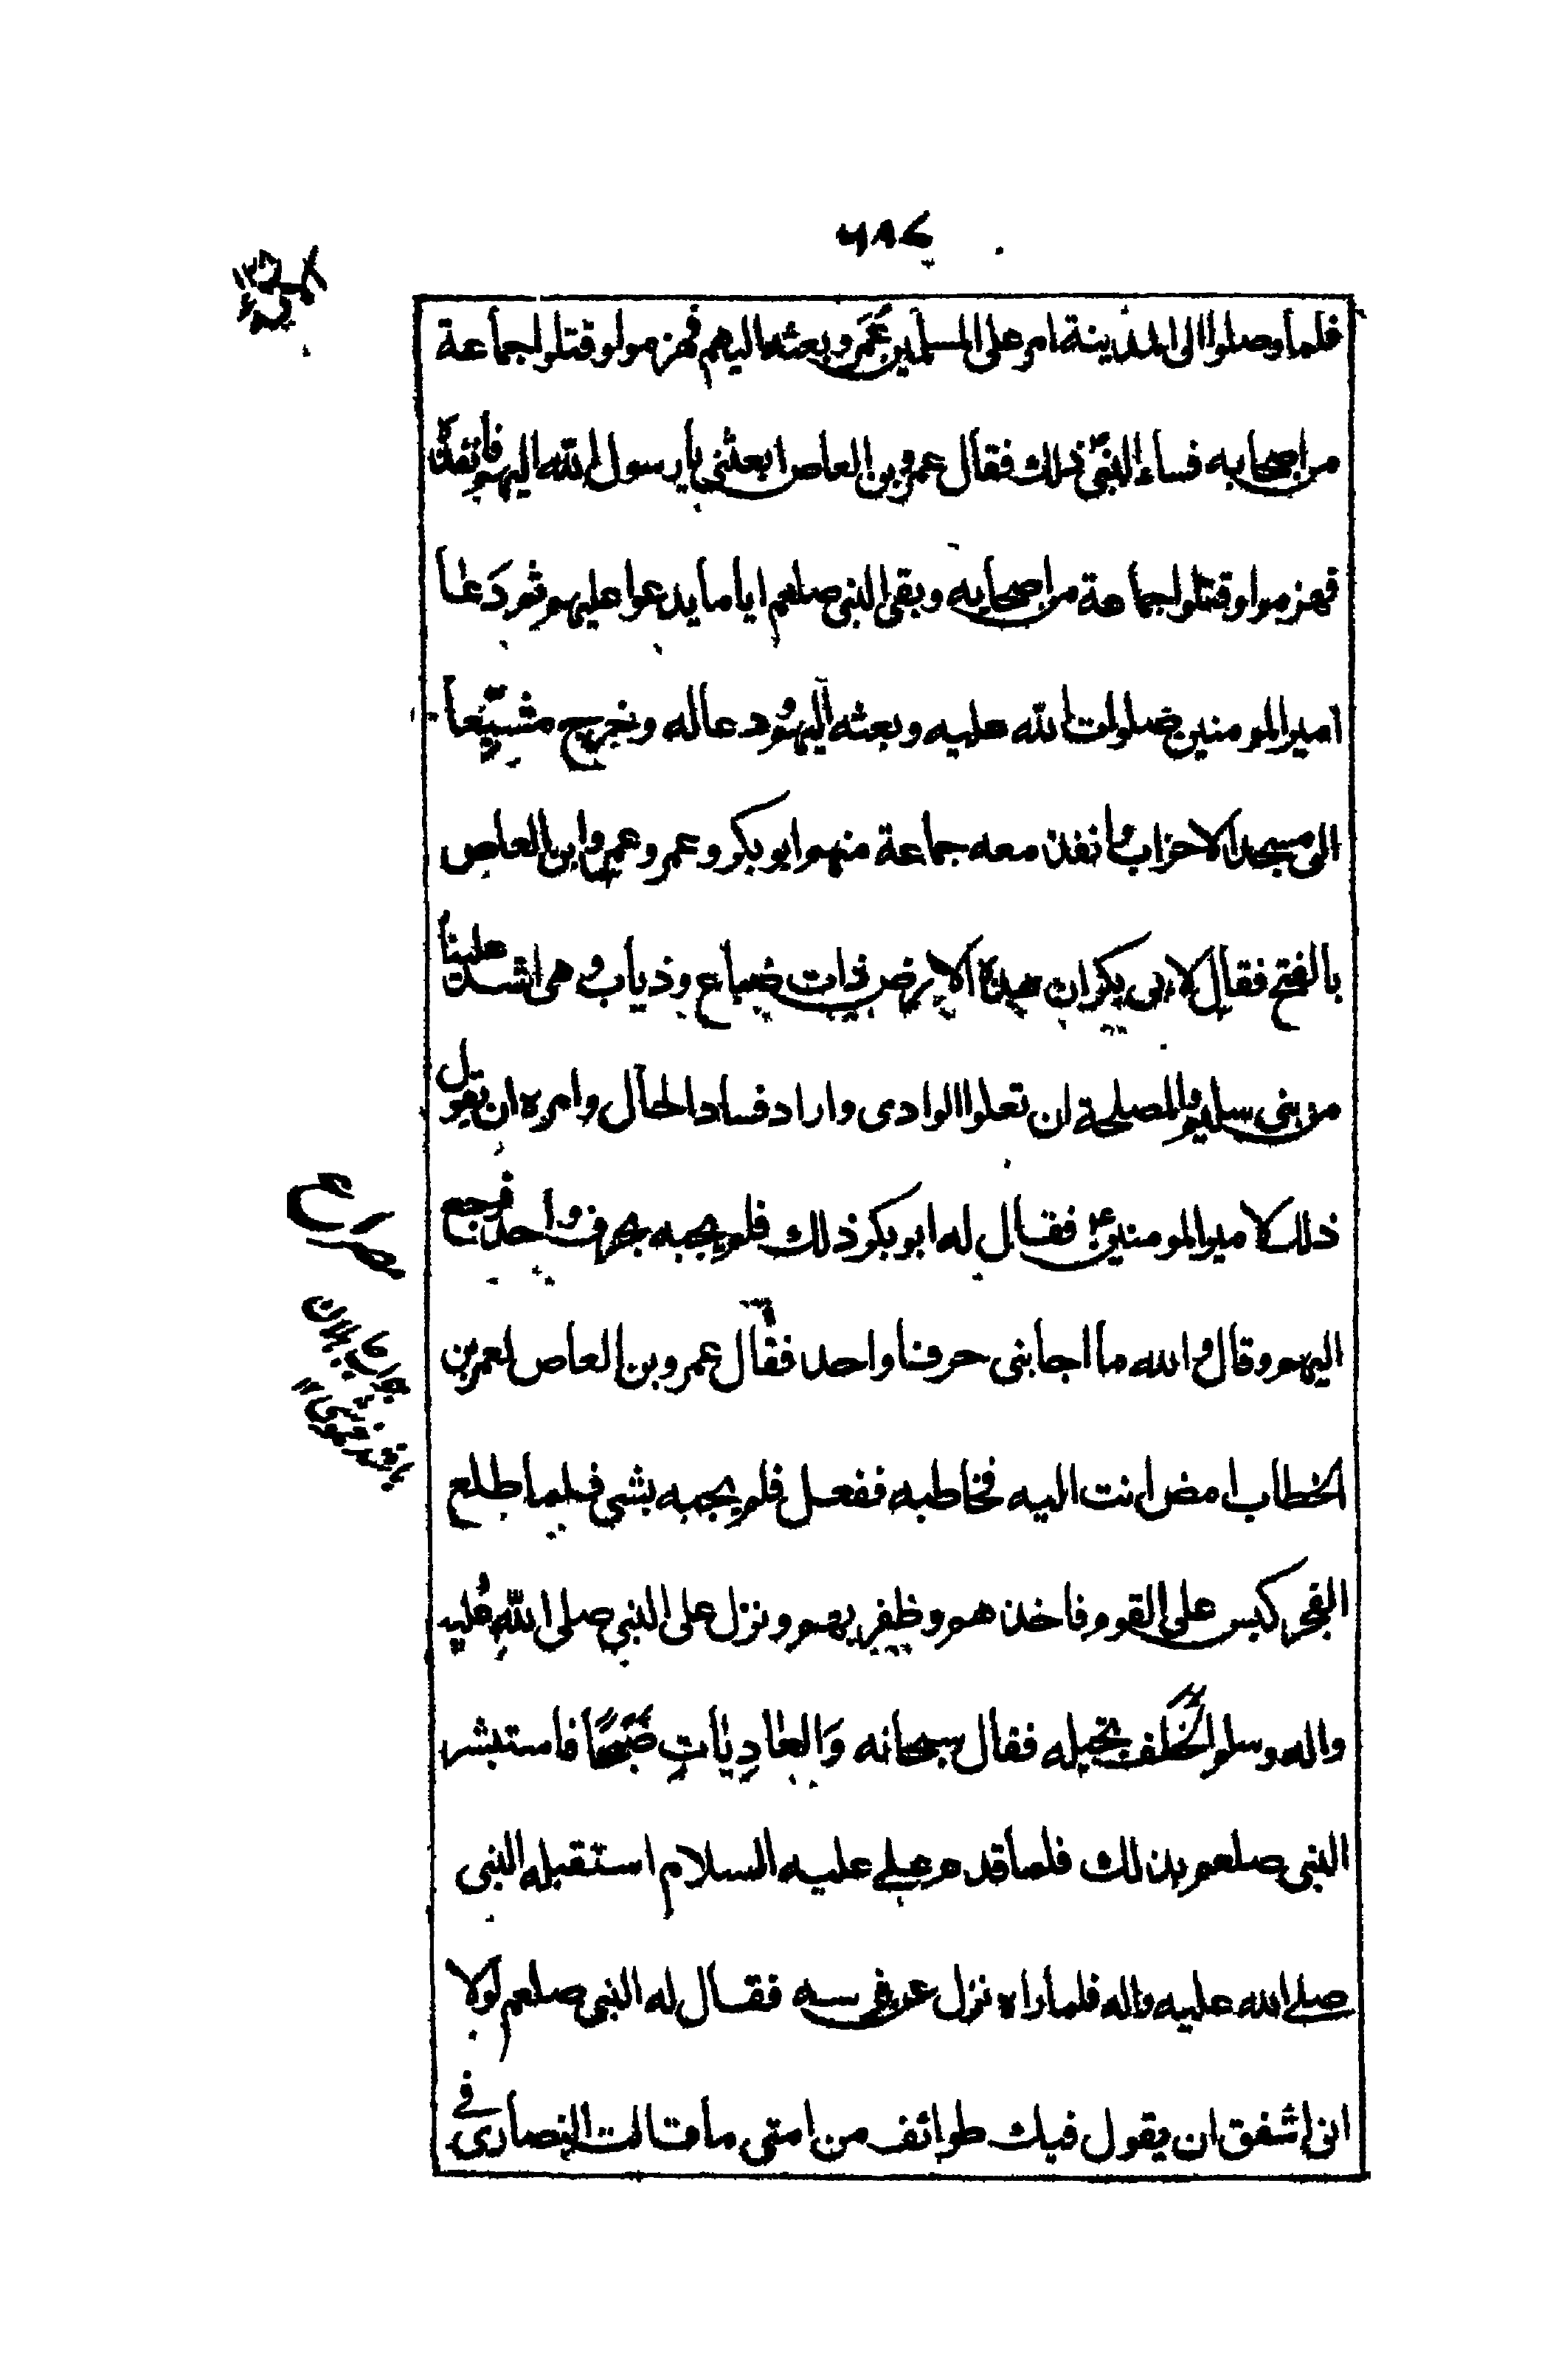 فلما وصلوا الى المدينة امر على المسلمين عمر وبعثه اليهم فهزموا وقتلوا جماعة
من اصحابه فساء النبي ذلك فقال عمرو بن العاص ابعثني يا رسول الله اليهم فانفذه
فهزموا وقتلوا جماعة من اصحابه وبقى النبي صلعم اياما يدعوا عليهم ثم دَعا
امير المومنين صلوات الله عليه وبعثه اليهم ودعا له وخرج مشيّعا
الى مسجد الاحزاب وانفذ معه جماعة منهم ابو بكر وعمر وعمرو ابن العاص
بالفتح فقال لابي بكر ان هذه الارض ذات ضباع وذياب وهي اشد علينا
من بني سليم والمصلحة ان تعلوا الوادي واراد فساد الحال وامره ان يقول
ذلك لامير المومنينؑ فقال له ابو بكر ذلك فلم يجبه بحرف واحد فرجع
اليهم وقال والله ما اجابني حرفا واحدا فقال عمرو بن العاص لعمر بن
الخطاب امض انت اليه فخاطبه ففعل فلم يجبه بشي فلما طلع
الفجر كبس على القوم فاخذهم وظفر بهم ونزل على النبي صلى الله عليه
واله وسلم الحلف بخيله فقال سبحانه وَالعادِياتِ ضَبْحًا فاستبشر
النبي صلعم بذلك فلما قدم على عليه السلام استقبله النبي
صلے الله عليه واله فلما راه نزل عن فرسه فقال له النبي صلعم لولا
اني اشفق ان يقول فيك طوائف من امتى ما قالت النصارى في